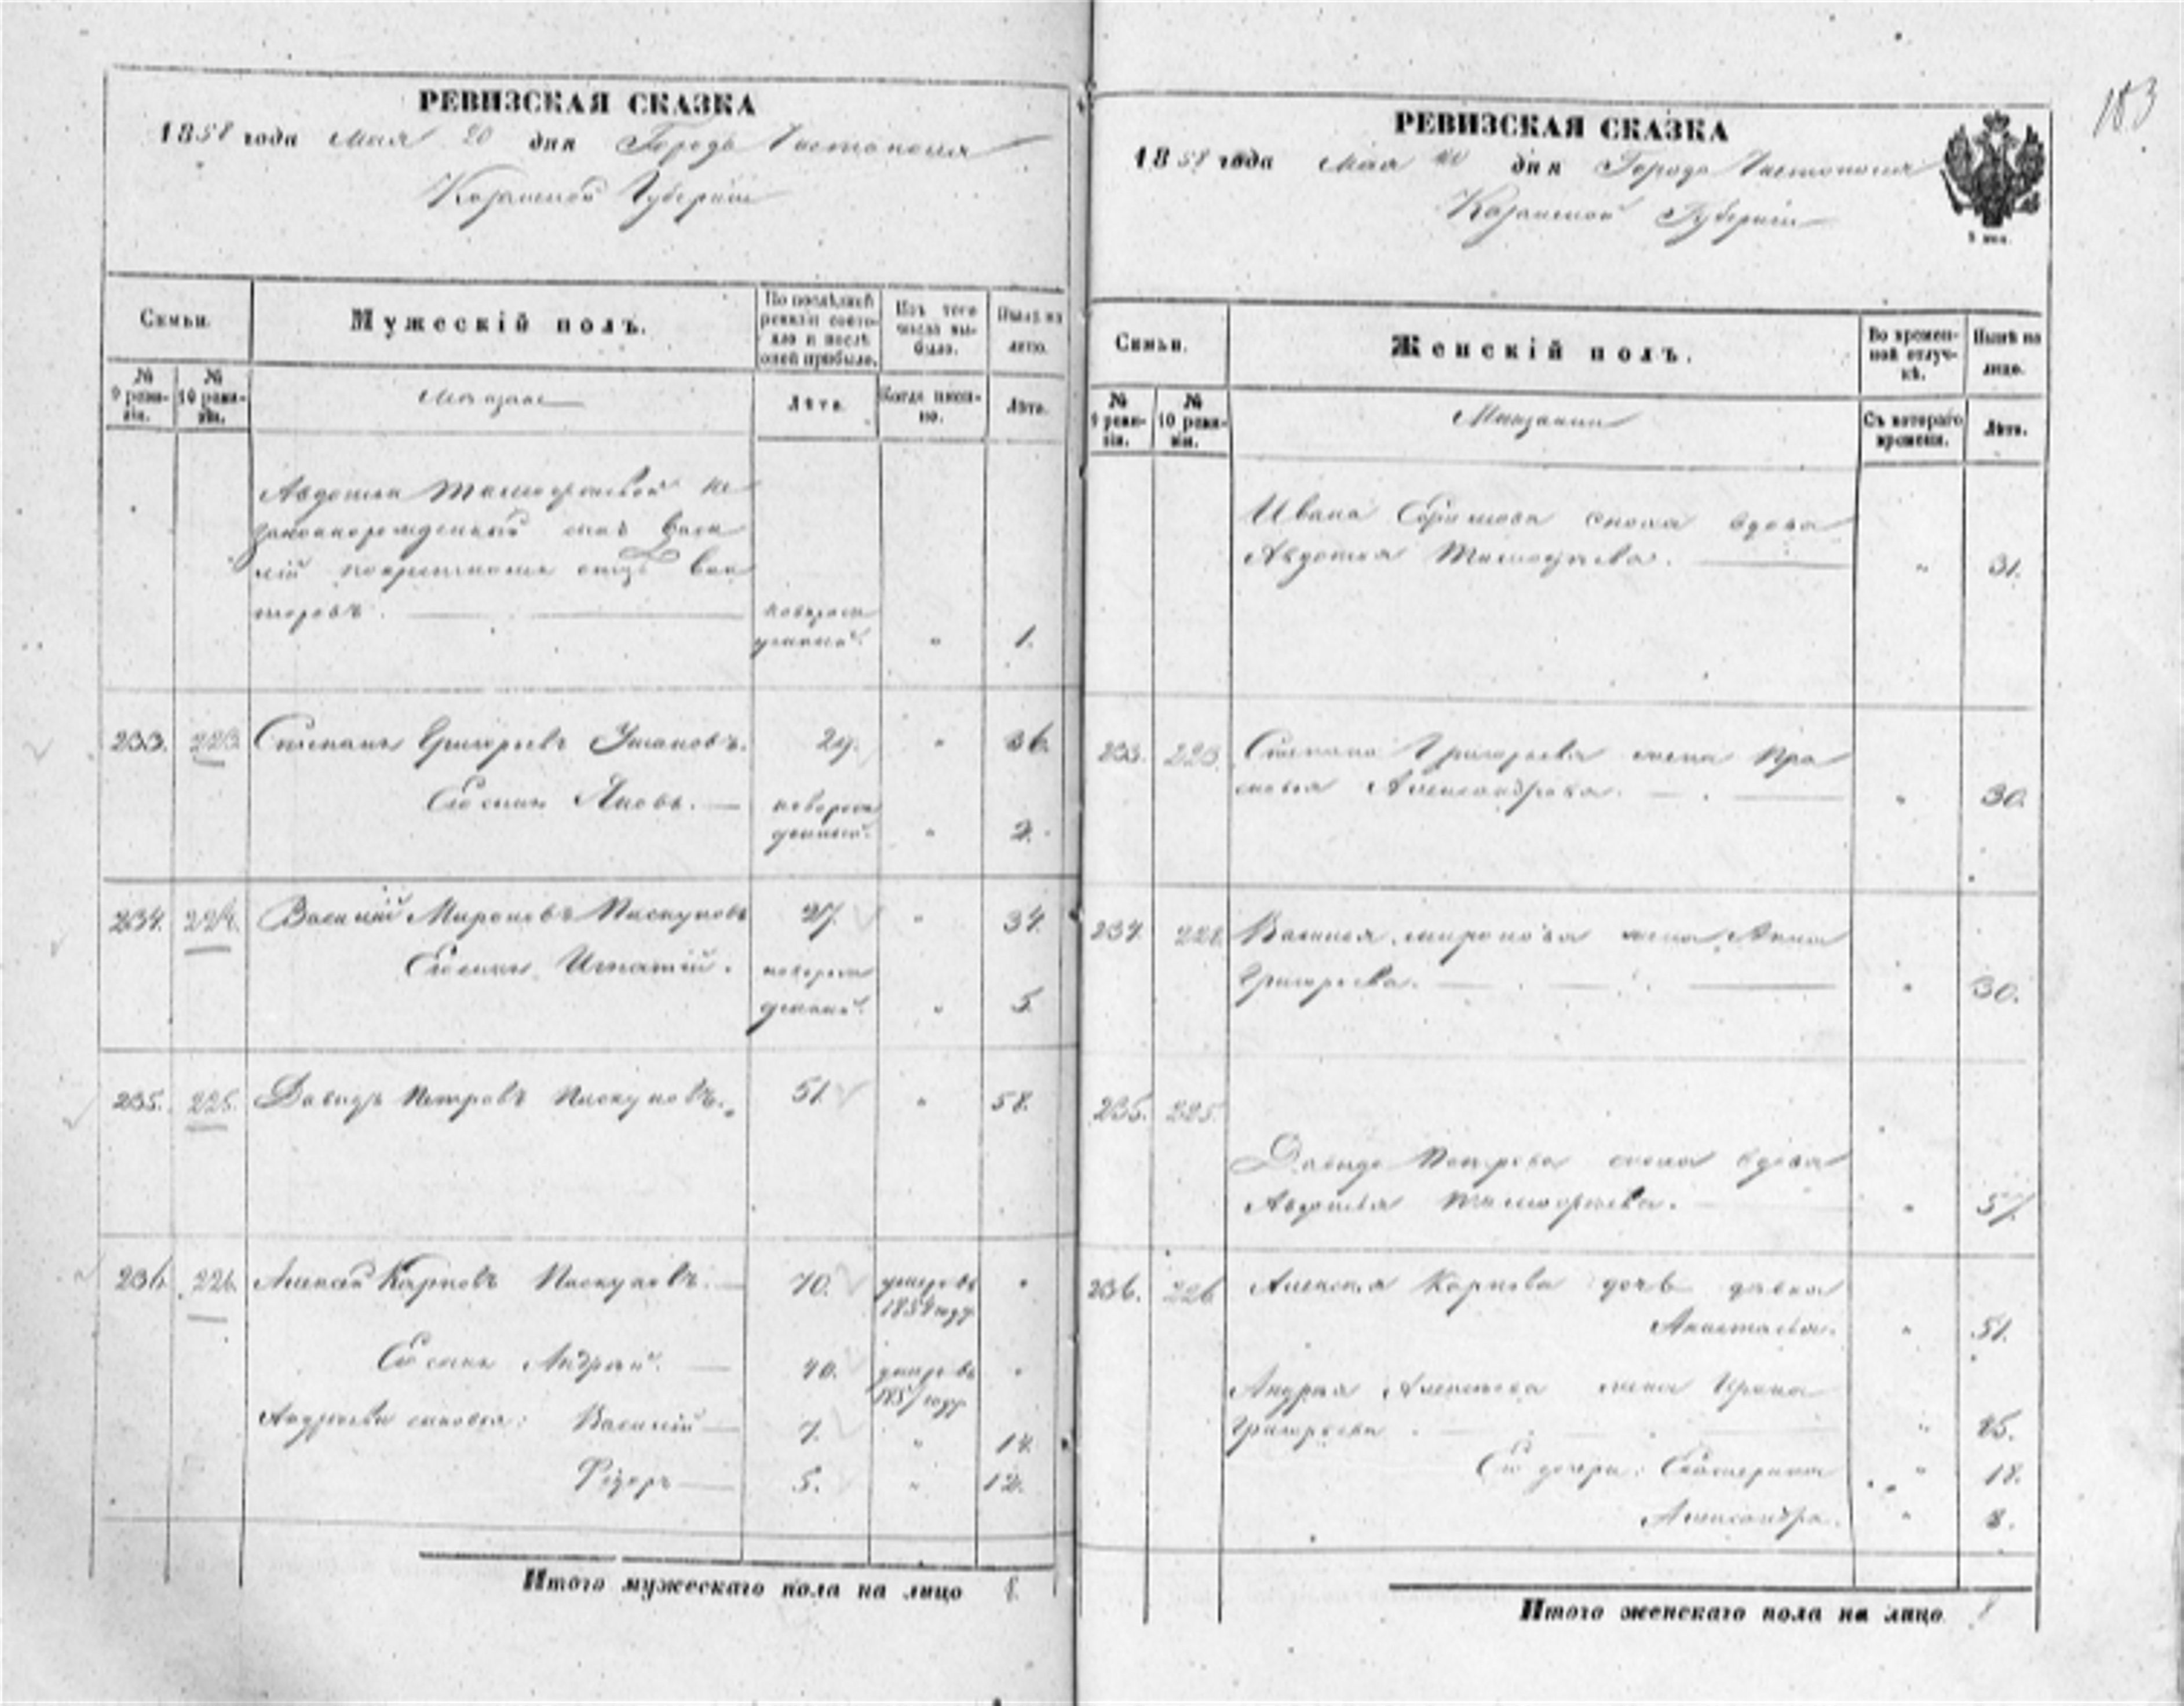 РЕВИЗСКАЯ СКАЗКА
1858 года Мая 20 дня Городъ Чистополя
Казанской Губерніи
Семьи.
Мужескій полъ.
По послѣдней ревизіи состояло и послѣ оной прибыло.
Изъ того числа выбыло.
Нынѣ на лицо.
№ 9 ревизіи.
№ 10 ревизіи.
Мѣщане
Лѣта.
Когда именно.
Лѣта.
Авдотьи Тимофѣевой не
законнорожденный сынъ Васи
лій
торовъ.
новорож
денный. " 1.
233. 223. Степанъ Григорьевъ Ушановъ. 29. " 36.
Его сынъ Яковъ. новорож
денный. " 2.
234. 224. Василій Мироновъ Пискуновъ 27. " 34.
Его сынъ Игнатій. новорож
денный. " 5.
235. 225. Давидъ Петровъ Пискуновъ. 51. " 58.
236. 226. Алексей Карповъ Пискуновъ. 70. умеръ въ "
1854 году
Его сынъ Андрей. 40. умеръ въ "
году
Андреевы сыновья: Василій 7. " 14.
Ѳедоръ 5. " 12.
Итого мужескаго пола на лицо 8.
183
РЕВИЗСКАЯ СКАЗКА
1858 года Мая 20 дня Города Чистополя
Казанской Губерніи
Семьи.
Женскій полъ.
Во временной отлучкѣ.
Нынѣ на лицо.
№ 9 ревизіи.
№ 10 ревизіи.
Мѣщанки
Съ котораго времени.
Лѣта.
Ивана Ефимова сноха вдова
Авдотья Тимофѣева. " 31.
233. 223. Степана Григорьева жена Пра
сковья Александрова. " 30.
234. 224. Василья Миронова жена Анна
Григорьева. " 30.
235. 225.
Давида Петрова сноха вдова
Авдотья Тимофѣева. " 57.
236. 226. Алексея Карпова дочь дѣвка
Анастасья. " 51.
Андрея Алексѣева жена Ирина
Григорьева "
Его дочери: Екатерина " 18.
Александра. " 8.
Итого женскаго пола на лицо 8